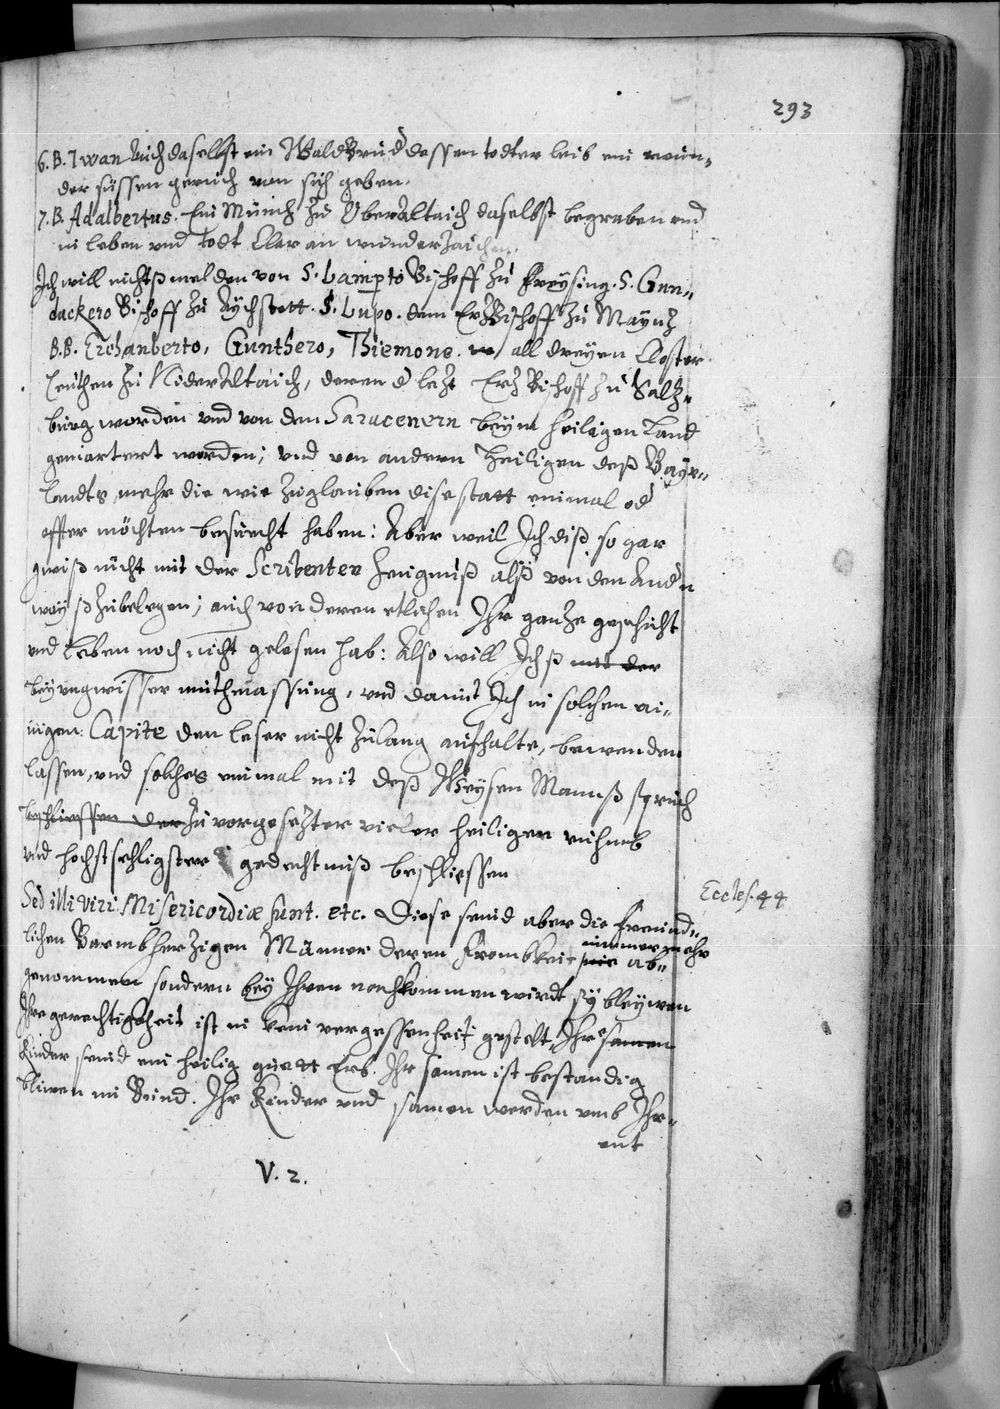 293
6. B. Iwan auch daselbst ein WaldBrud dessen todter leib ein wun-
der süssen geruch von sich geben.
7. B. Adalbertus. Ein Münch zu OberAltaich daselbst begraben und
in leben und todt klar an wunderzaichen.
Ich will nichts melden von S. Lamp̱to Bischoff zu Freysing. S. Gun-
dackero Bischoff zu Aychstett. S. Lupo. dem ErzBischoff zu Maynz
B.B. Erchanberto, Gunthero, Thiemone. all dreyen Closter
leuthen zu NiderAltaich, deren d lezt Erz Bischoff zu Salz-
burg worden und von den Saracenern beym heiligen Land
gemartert worden; und von andern Heiligen deß Bayr-
landts mehr die wie zuglauben dise statt einmal od
offter möchten besucht haben: Aber weil Ich diß so gar
gwiß nicht mit der Scribenten Zeugnuß alß von den Andn
wayß zubelegen; auch von deren etlichen Ihr ganze geschicht
und Leben noch nicht gelesen hab: Also will Ichß mit der
bey ungwisser muthmassung, und damit Ich in solchen ai-
nigen Capite den leser nicht zulang aufhalte, bewenden
lassen, und solches einmal mit deß Weysen Mannß spruch
beschliessen der zu vorgesezter vieler heiligen ruhmb
und hochstsehligster gedechtnuß beschliessen
Eccles. 44
Sed illi viri Misericordiæ sunt. etc. Diese seind aber die freund-
lichen Barmbherzigen Männer deren frombkeit nie ab-
nimmermehr
genommen sondern bey Ihren nachkommen wirdt sy bleywen
Ihre gerechtigkheit ist in kein vergessenheit gestelt, Ihr samen
Kinder seind ein heilig guett Erb. Ihr samen ist bestandig
bliwen im Bund. Ihr Kinder und samen werden umb Ihr-
ent
V. 2.